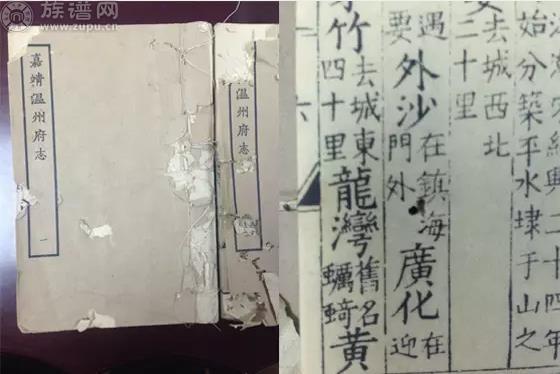 族谱网
www.zupu.cn
嘉靖溫州府志
一
州府志
興二十四年
始分築平水埭于山之
去城西北
二十里
遇
要
外沙
在鎮海
門外
廣化
在
迎
竹
去城東
四十里
龍灣
舊名
蠣蜞
黃